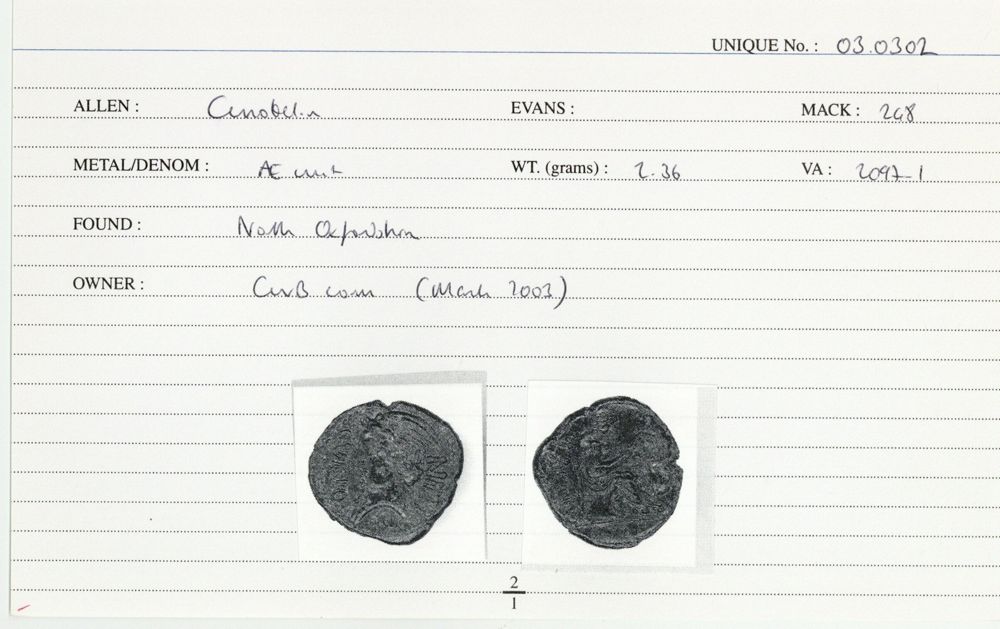 UNIQUE No. : 03.0302
ALLEN : Cunobelin EVANS : MACK : 248
METAL/DENOM : Æ unit WT. (grams) : 2.36 VA : 2097-1
FOUND : North Oxfordshire
OWNER : com (March 2003)
2
1